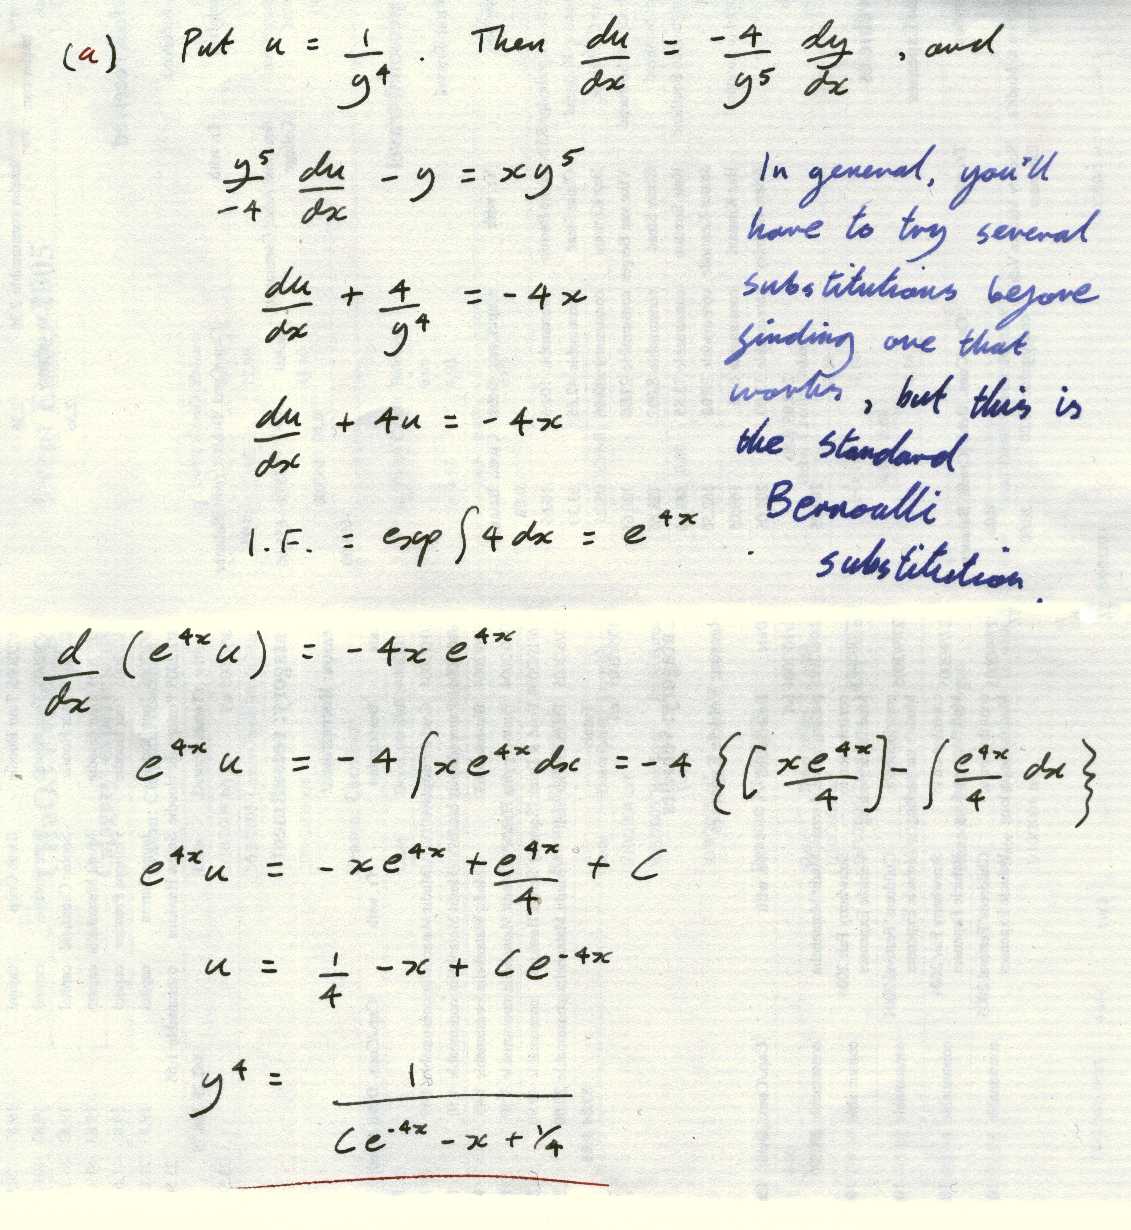 (a) Put u = 1/y⁴ . Then du/dx = -4/y⁵ dy/dx , and
y⁵/-4 du/dx - y = xy⁵
du/dx + 4/y⁴ = -4x
du/dx + 4u = -4x
I.F. = exp ∫ 4 dx = e⁴ˣ .
In general, you'll
have to try several
substitutions before
finding one that
works, but this is
the standard
Bernoulli
substitution.
d/dx (e⁴ˣ u) = -4x e⁴ˣ
e⁴ˣ u = -4 ∫ x e⁴ˣ dx = -4 { [ xe⁴ˣ/4 ] - ∫ e⁴ˣ/4 dx }
e⁴ˣ u = -x e⁴ˣ + e⁴ˣ/4 + C
u = 1/4 - x + Ce⁻⁴ˣ
y⁴ = 1/(Ce⁻⁴ˣ - x + 1/4)